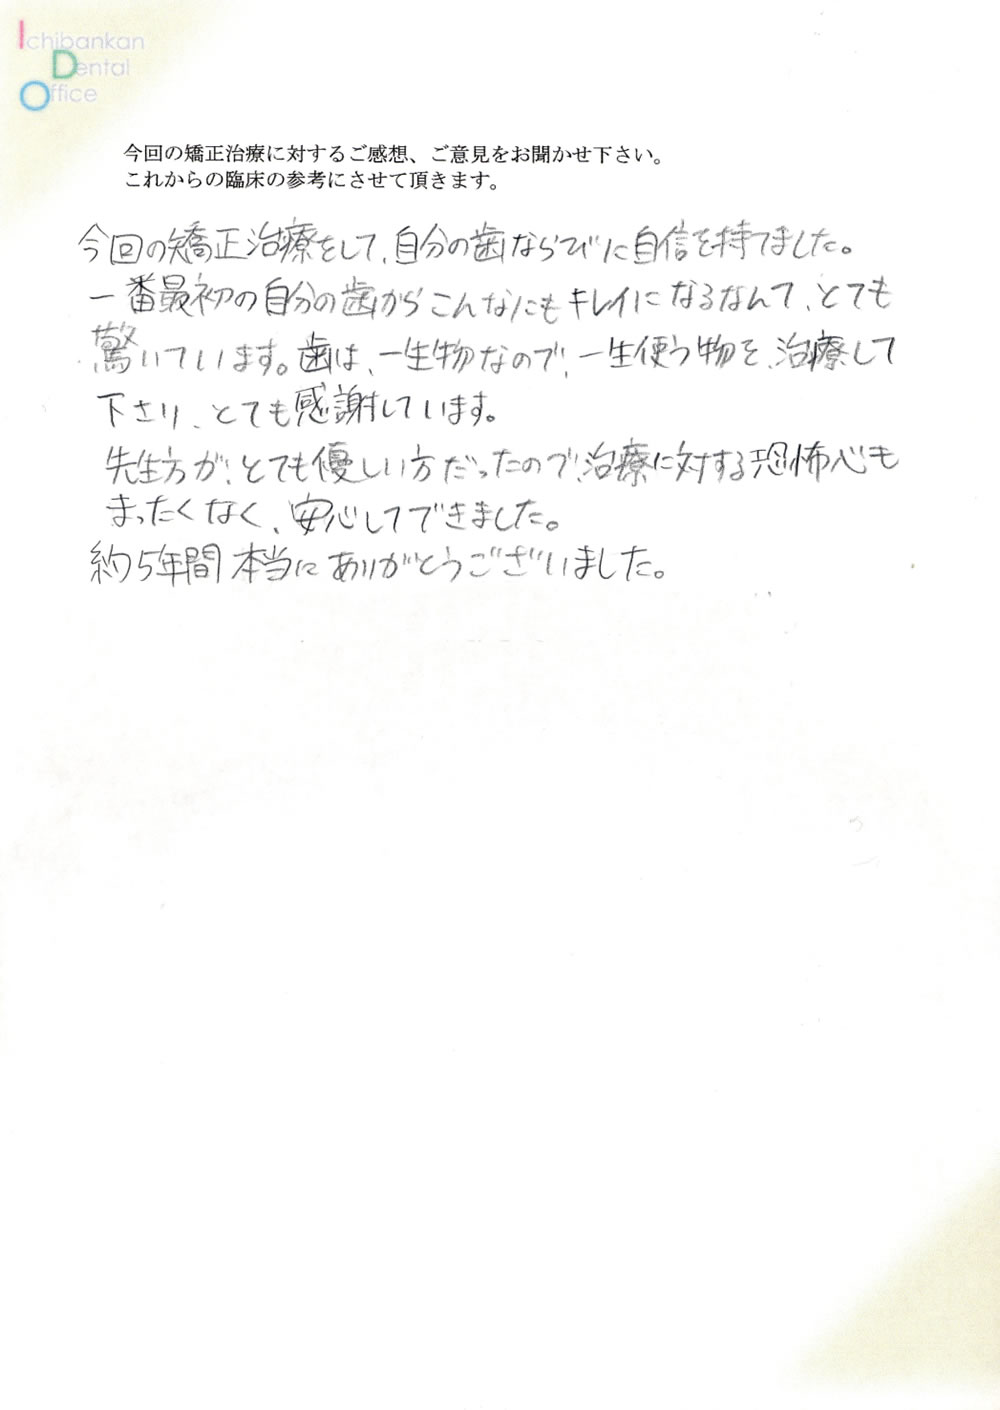 Ichibankan
Dental
Office
今回の矯正治療に対するご感想、ご意見をお聞かせ下さい。
これからの臨床の参考にさせて頂きます。
今回の矯正治療をして、自分の歯ならびに自信を持てました。
一番最初の自分の歯からこんなにもキレイになるなんて、とても
驚いています。歯は、一生物なので、一生使う物を、治療して
下さり、とても感謝しています。
先生方が、とても優しい方だったので、治療に対する恐怖心も
まったくなく、安心してできました。
約5年間本当にありがとうございました。